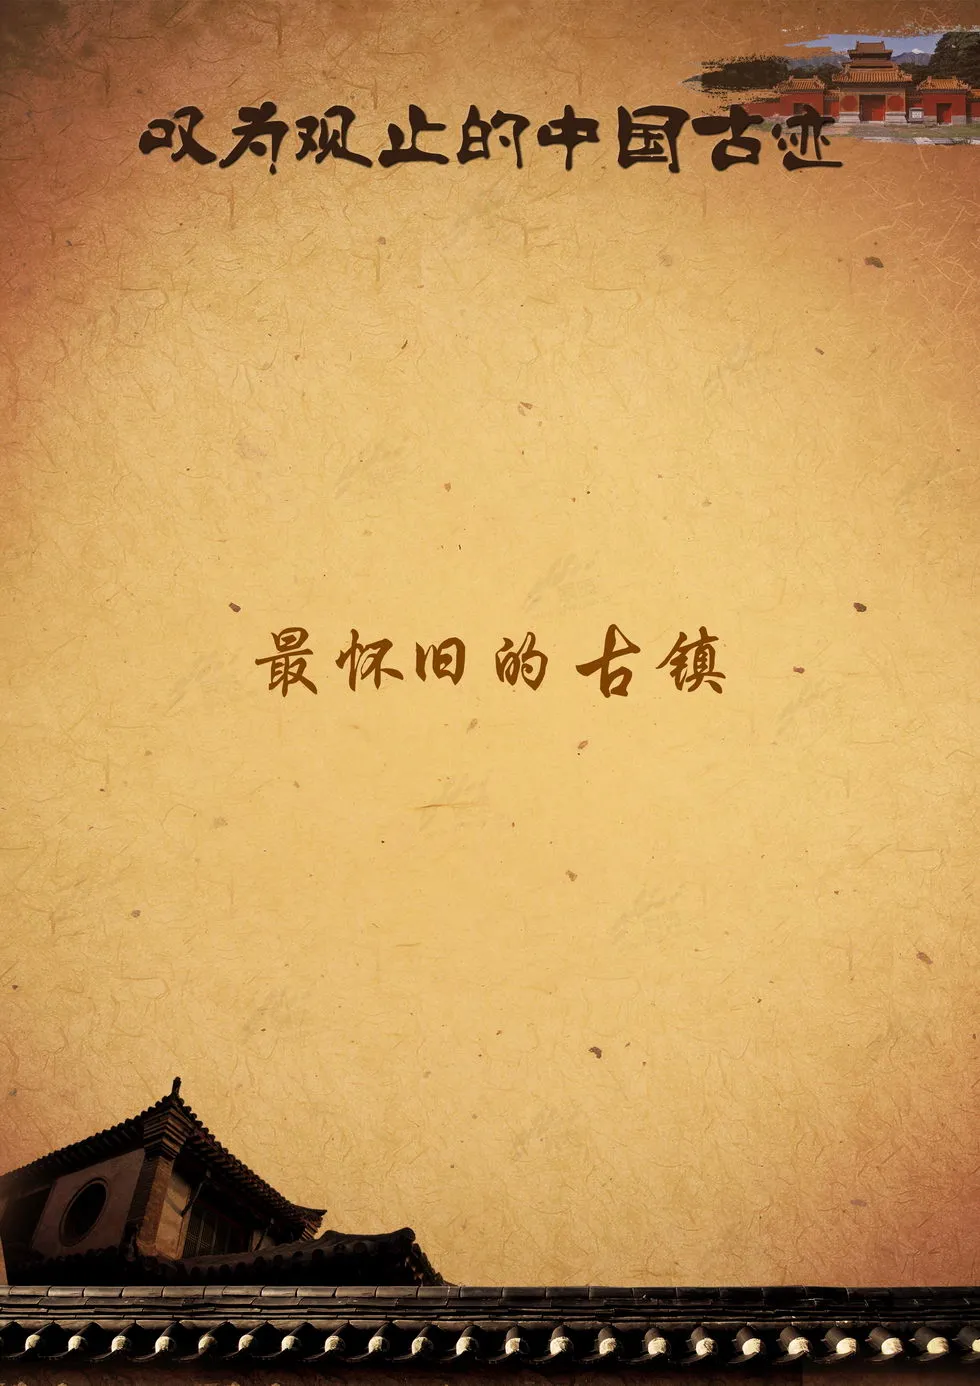 叹为观止的中国古迹
最怀旧的古镇